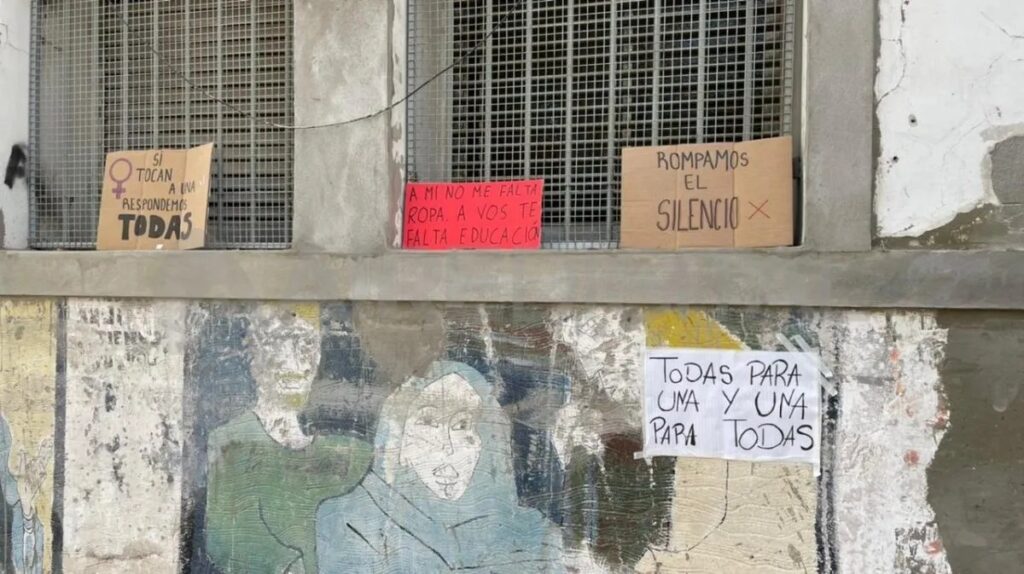 SI
TOCAN
A UNA
RESPONDEMOS
TODAS
A MI NO ME FALTA
ROPA. A VOS TE
FALTA EDUCACION
ROMPAMOS
EL
SILENCIO
TODAS PARA
UNA Y UNA
PARA TODAS